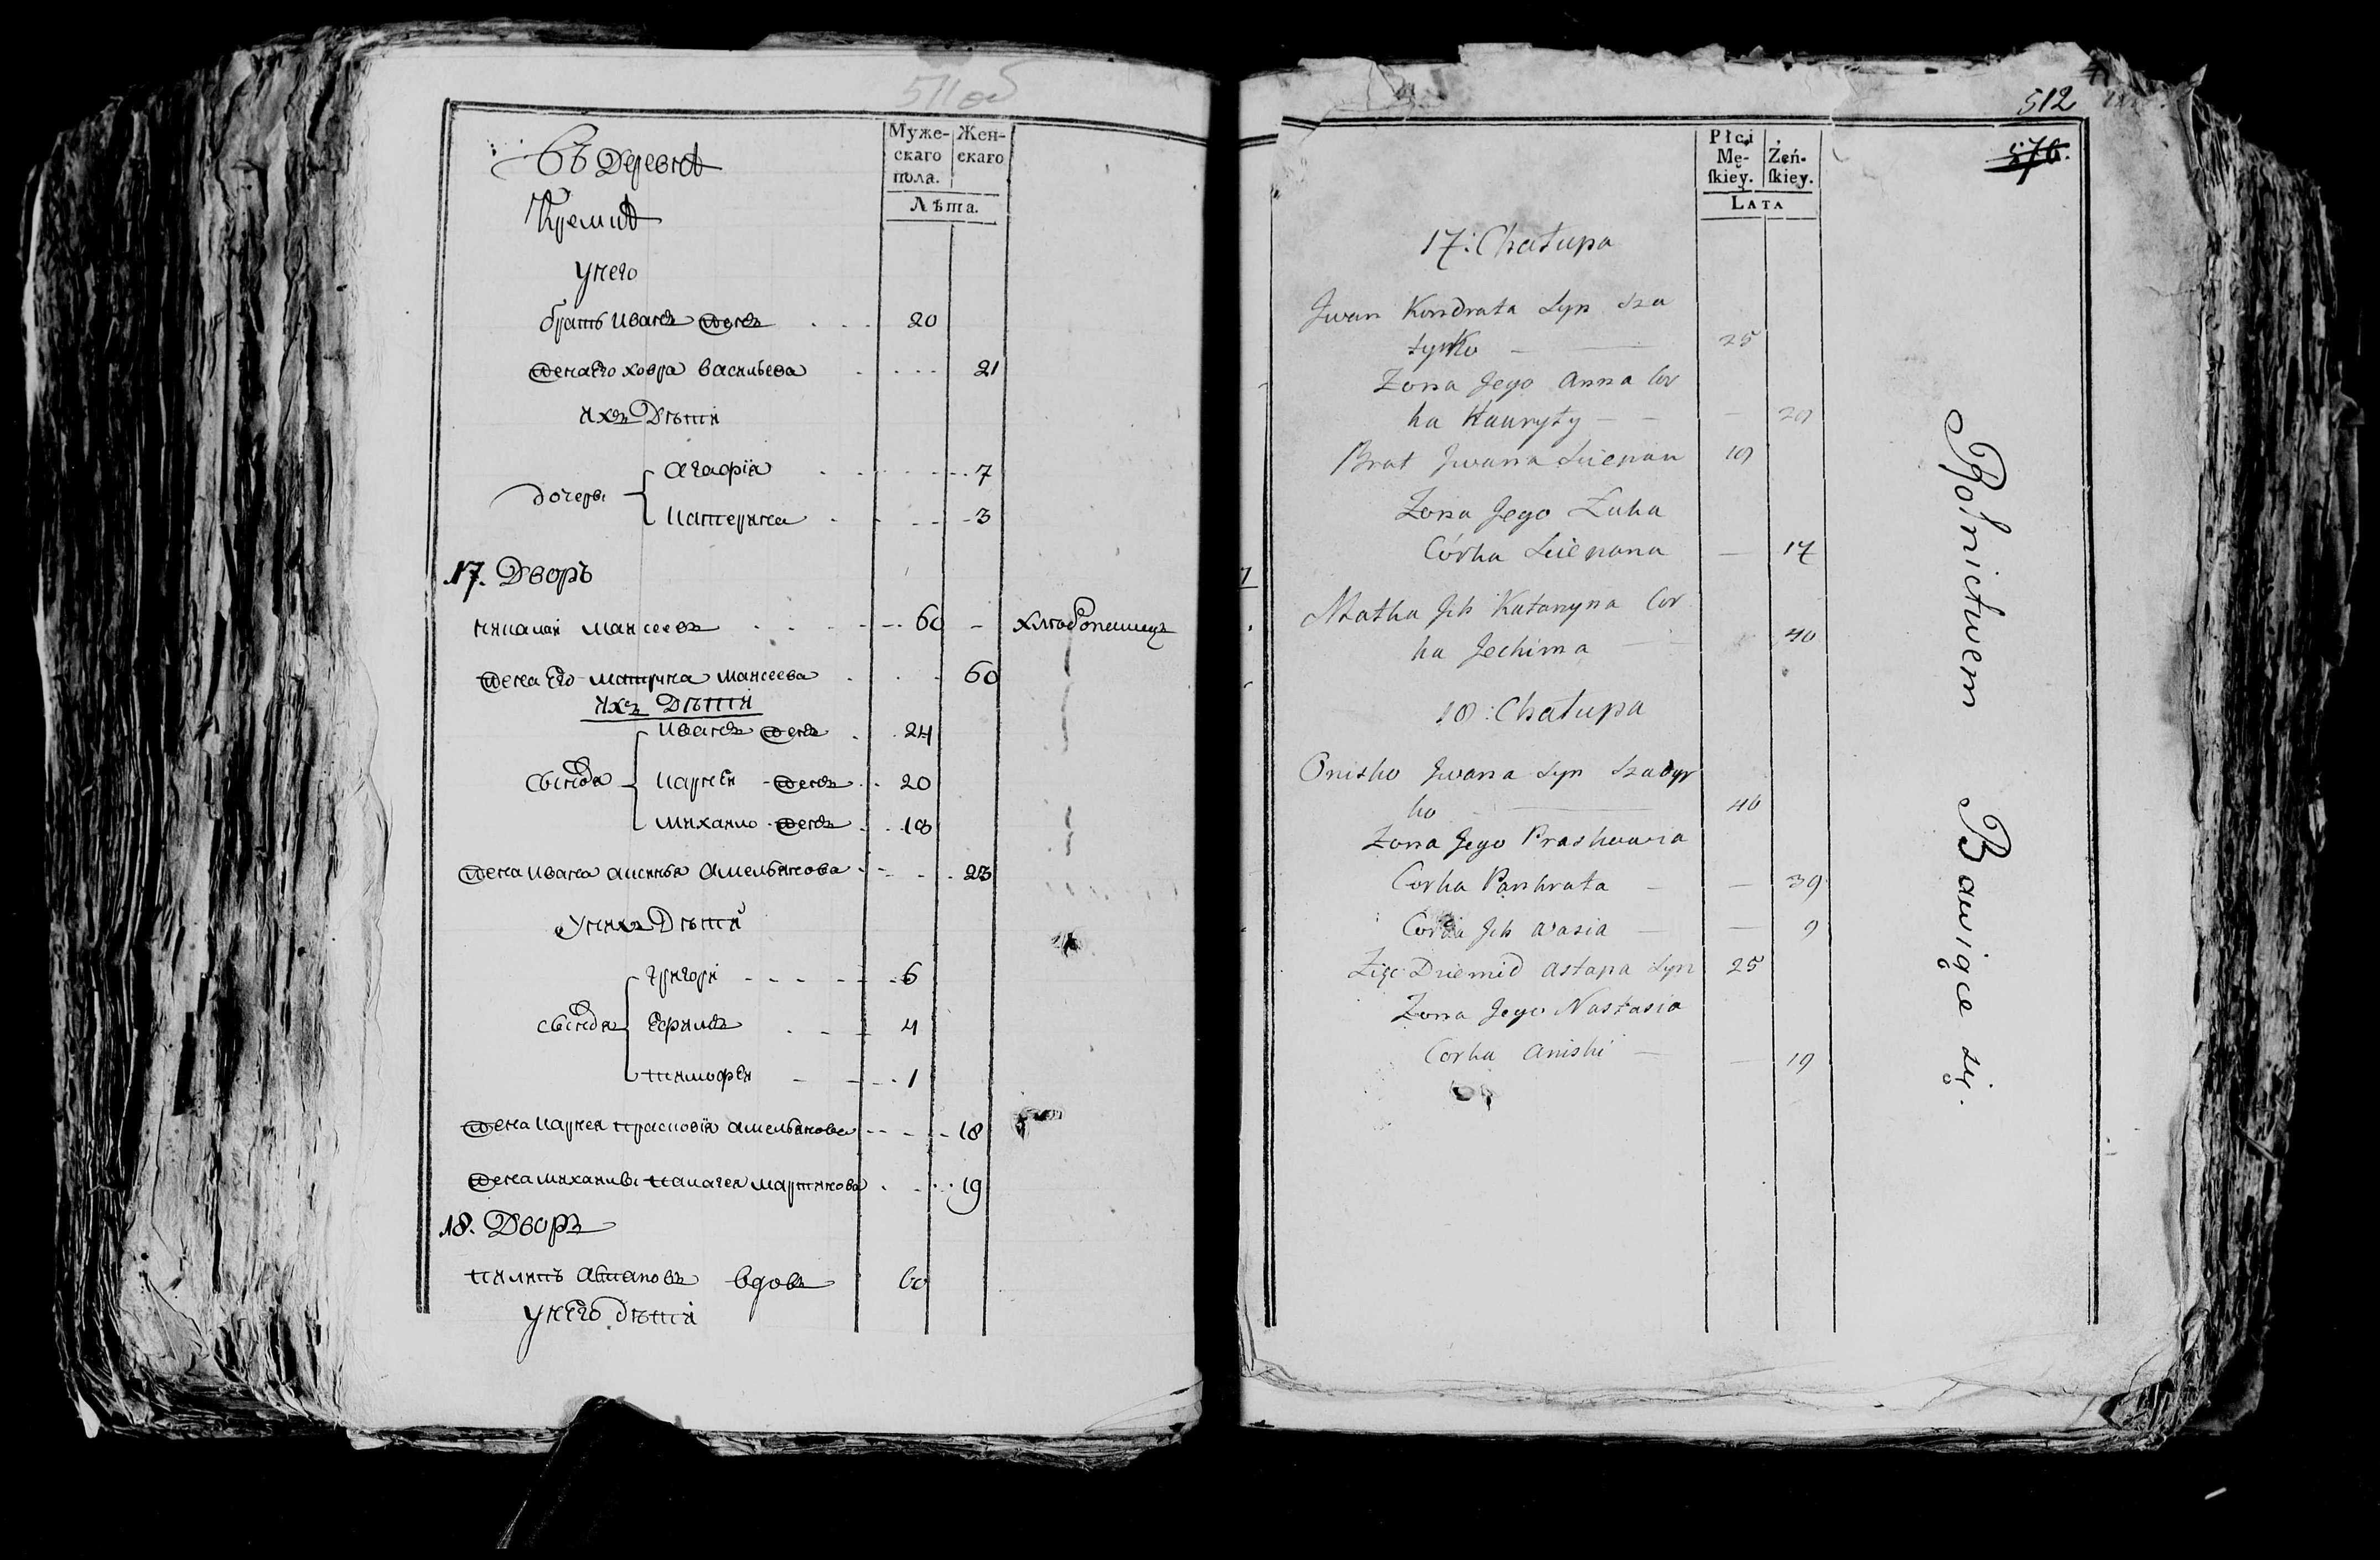 511об
Въ деревнѣ
Кремнѣ
Муже-
скаго
пола.
Жен-
скаго
Лѣта.
у него
братъ иванъ женъ 20
жена Его ховра васильева 21
ихъ Дѣти
дочери
агафїя 7
катерина 3
17. Дворъ
николай моисеевъ 60 хлѣбопашецъ
жена Его матрина моисеева 60
ихъ Дѣти
сынова
иванъ женъ 24
карнѣй женъ 20
михайло женъ 18
жена ивана аксинья амельянова 23
у нихъ Дѣти
сынова
григори 6
Ефримъ 4
тимофѣй 1
жена карнея прасковїя амельянова 18
жена михайлы палагея мартинова 19
18. Дворъ
пилипъ авдовъ 60
у него дѣти
512
576.
Płci
Mę-
ſkiey.
Żeń-
ſkiey.
LATA
17: Chałupa
Jwan Kondrata Syn Sza
tyrko 25
Zona Jego Anna Cor
ka Hauryły 20
Brat Jwana Sciepan 19
Zona Jego Łuka
Córka Sciepana 17
Matka Jch Katarzyna Cor
ka Jechima 40
18: Chałupa
Onisko Jwana Syn Szadyr
ko 46
Zona Jego Praskowia
Corka Pankrata 39
Corka Jch Wasia 9
Zięc Dziemid Astapa Syn 25
Zona Jego Nastasia
Corka Aniski 19
Rolnictwem Bawiące się.